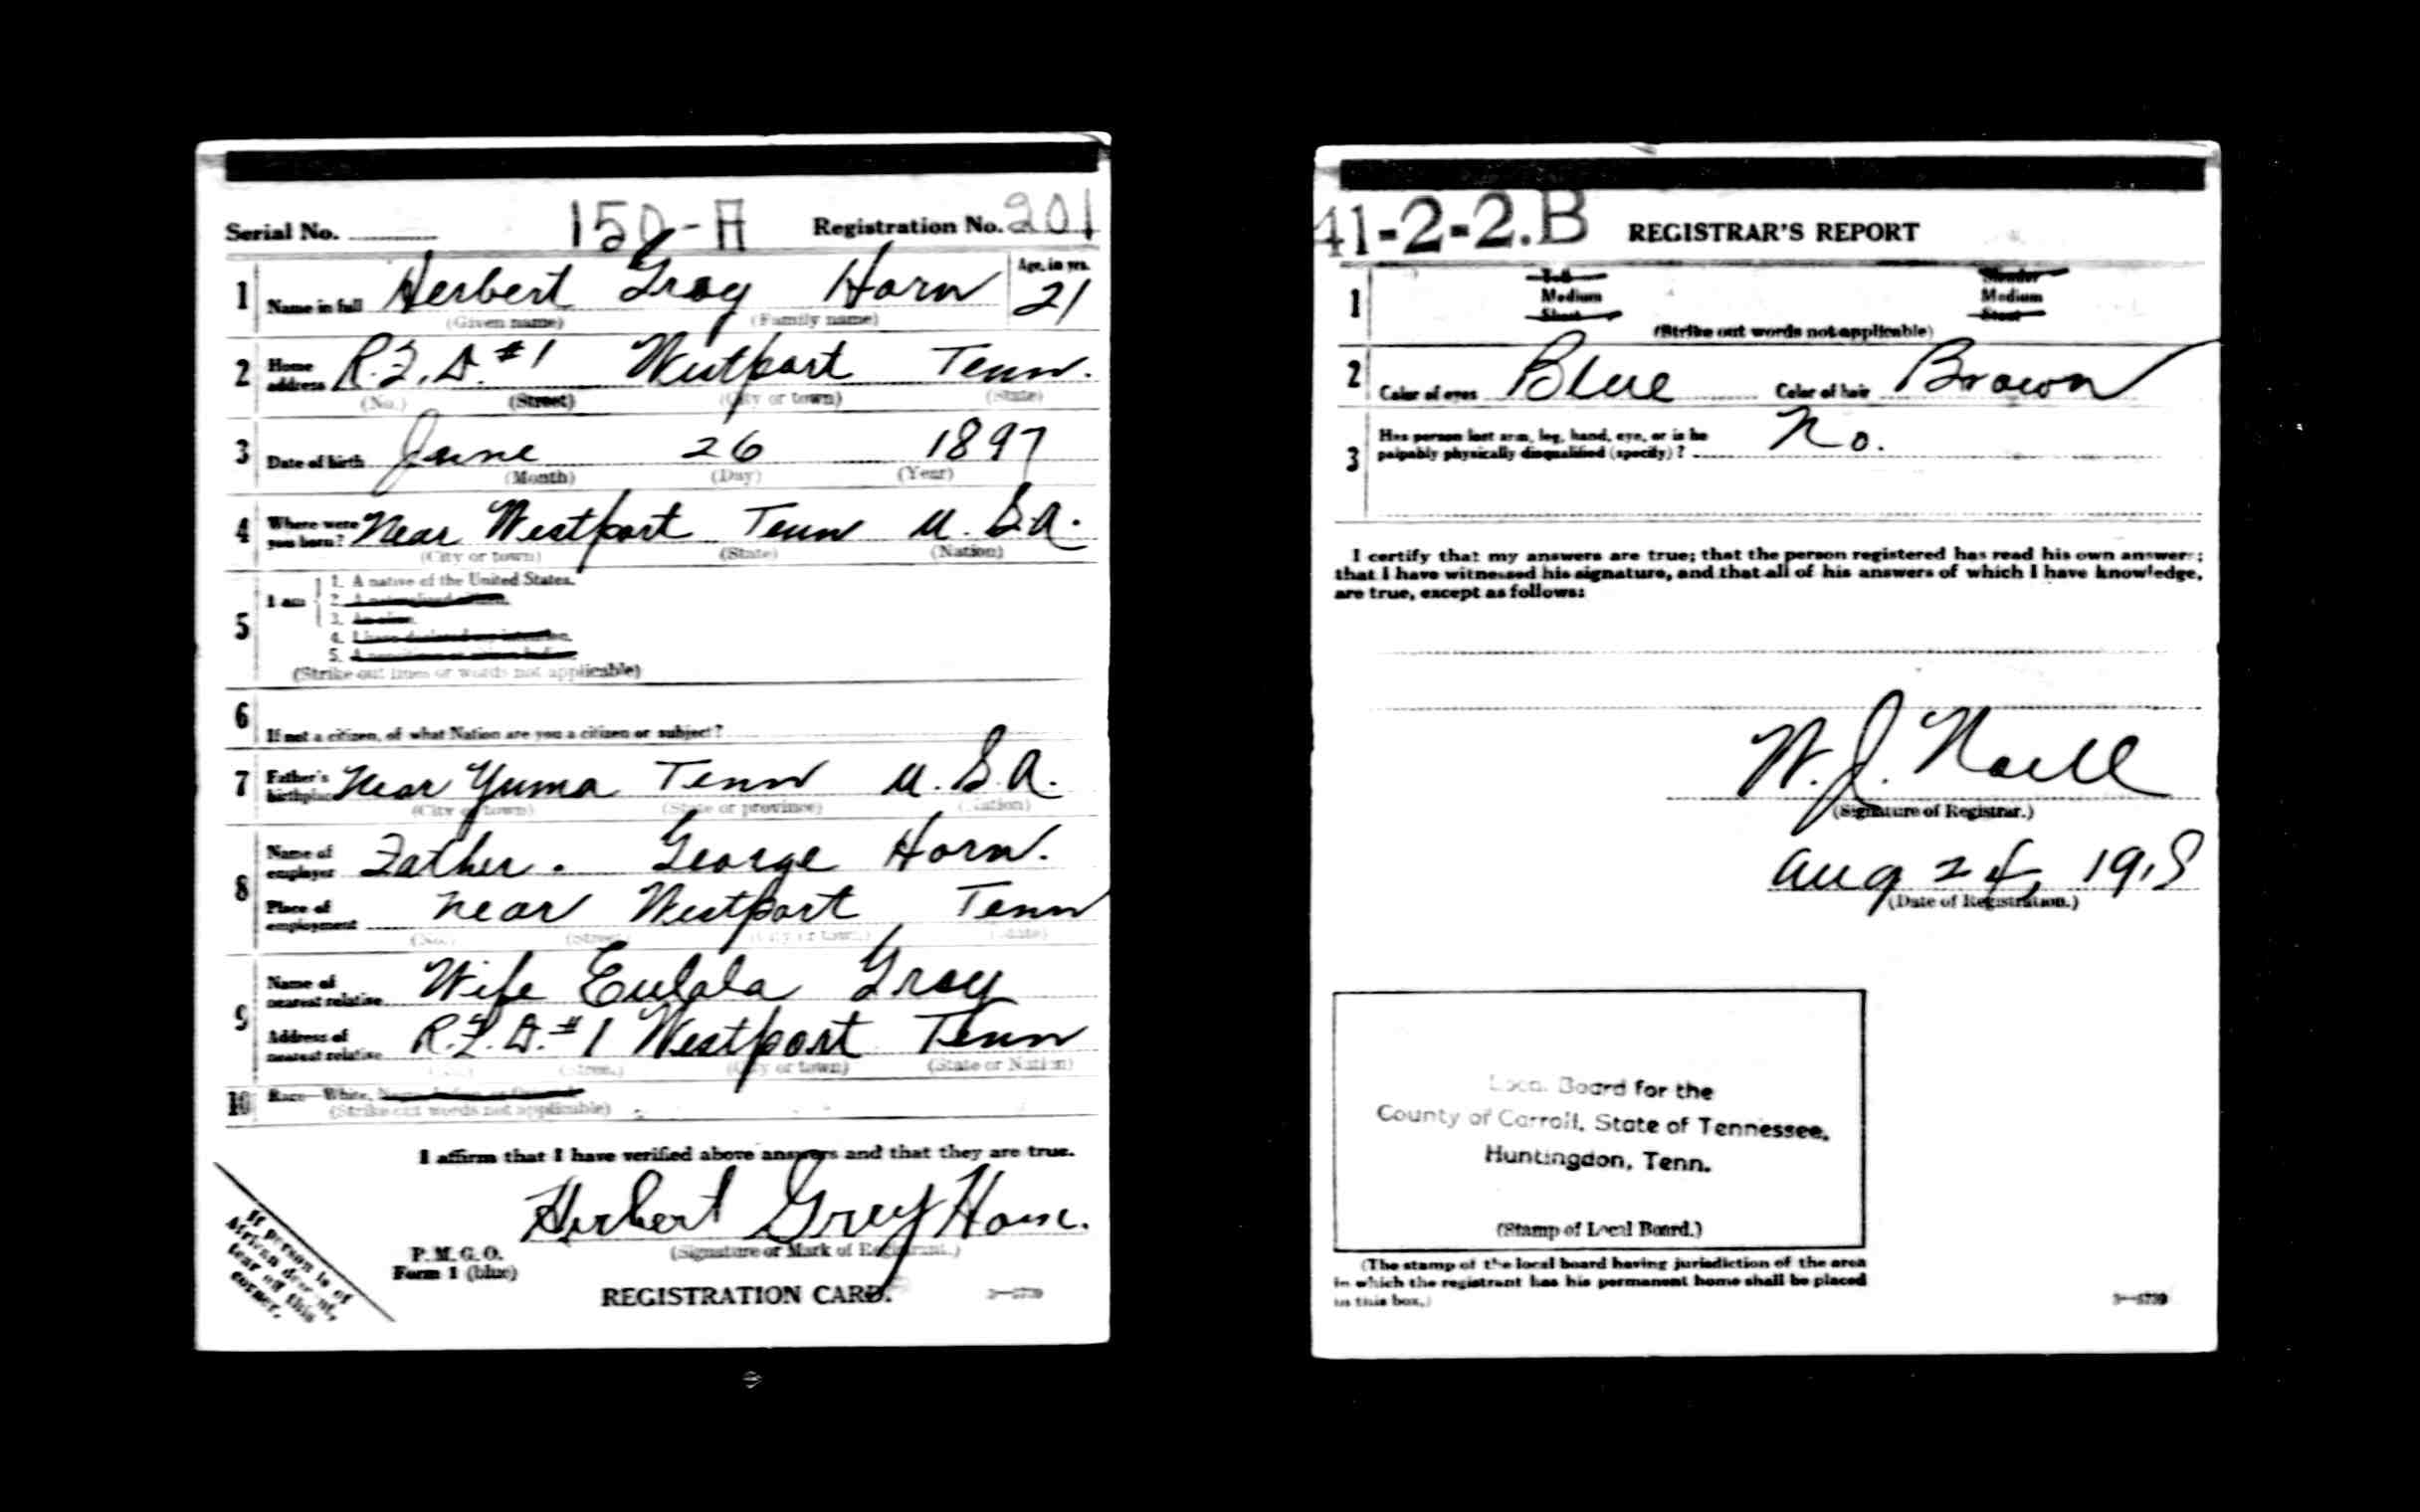 Serial No. 150-A Registration No. 201
1 Name in full Herbert Gray Horn Age, in yrs. 21
(Given name) (Family name)
2 Home address R.F.D. #1 Westport Tenn.
(No.) (Street) (City or town) (State)
3 Date of birth June 26 1897
(Month) (Day) (Year)
4 Where were you born? Near Westport Tenn U.S.A.
(City or town) (State) (Nation)
5 I am
1. A native of the United States.
2. A naturalized citizen.
3. An alien.
4. I have declared my intention.
5.
(Strike out lines or words not applicable)
6 If not a citizen, of what Nation are you a citizen or subject?
7 Father's birthplace Near Yuma Tenn U.S.A.
(City or town) (State or province) (Nation)
8 Name of employer Father. George Horn.
Place of employment near Westport Tenn
(No.) (Street) (City or town) (State)
9 Name of nearest relative Wife Eulala Gray
Address of nearest relative R.F.D. #1 Westport Tenn
(No.) (Street) (City or town) (State or Nation)
10 Race—White,
(Strike out words not applicable)
I affirm that I have verified above answers and that they are true.
Herbert Grey Horn.
(Signature or Mark of Registrant.)
P. M. G. O.
Form 1 (blue)
REGISTRATION CARD.
3—5739
If person is of
African descent,
tear off this
corner.
41-2-2.B REGISTRAR'S REPORT
1 Tall Slender
Medium Medium
Short Stout
(Strike out words not applicable)
2 Color of eyes Blue Color of hair Brown
3 Has person lost arm, leg, hand, eye, or is he
palpably physically disqualified (specify)? No.
I certify that my answers are true; that the person registered has read his own answers;
that I have witnessed his signature, and that all of his answers of which I have knowledge,
are true, except as follows:
W. J. Naill
(Signature of Registrar.)
Aug 24, 1918
(Date of Registration.)
Local Board for the
County of Carroll, State of Tennessee,
Huntingdon, Tenn.
(Stamp of Local Board.)
(The stamp of the local board having jurisdiction of the area
in which the registrant has his permanent home shall be placed
in this box.)
3—5739